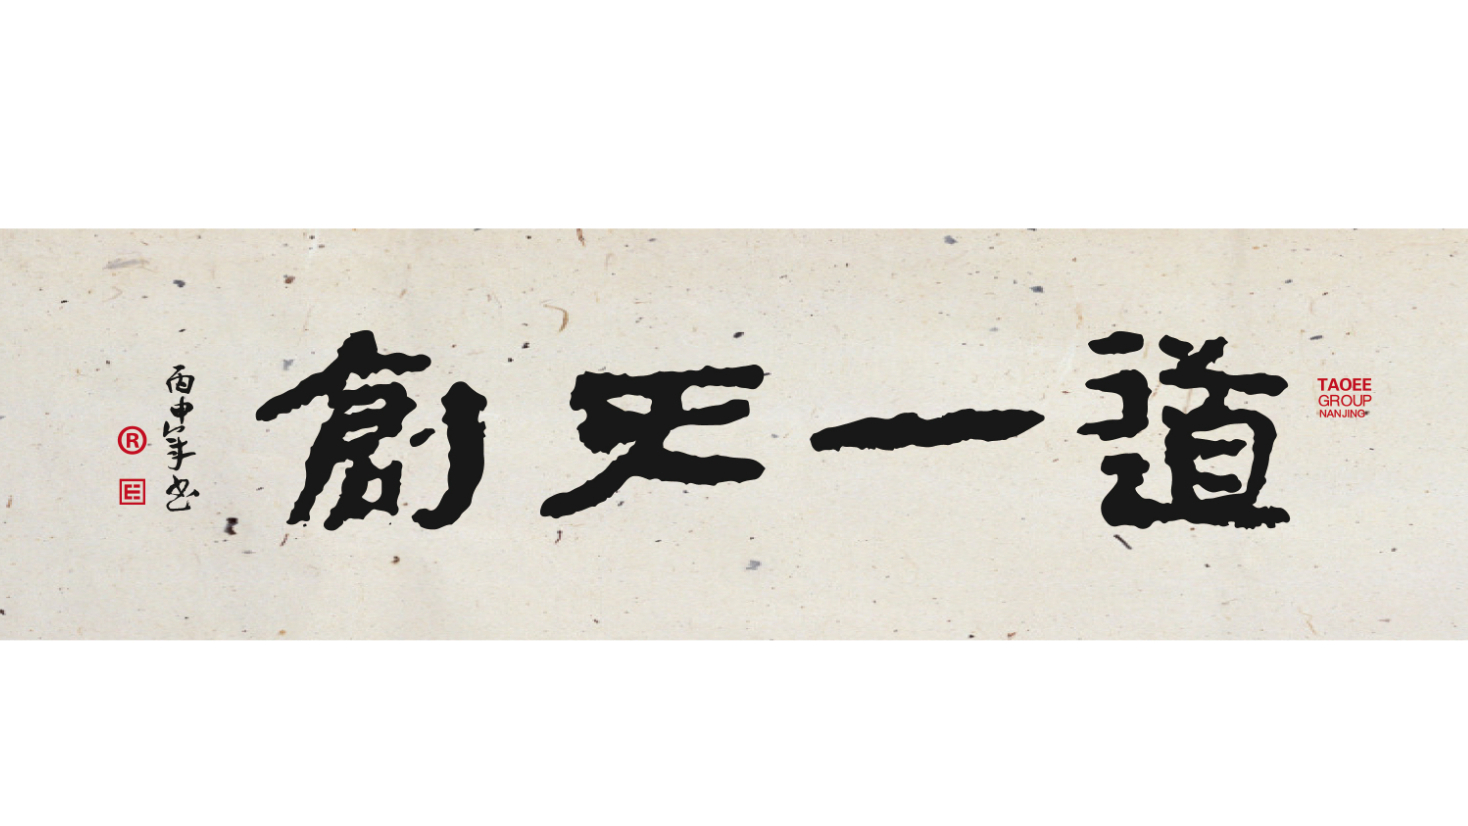 TAOEE
GROUP
NANJING
道一創
丙申年书
®
E